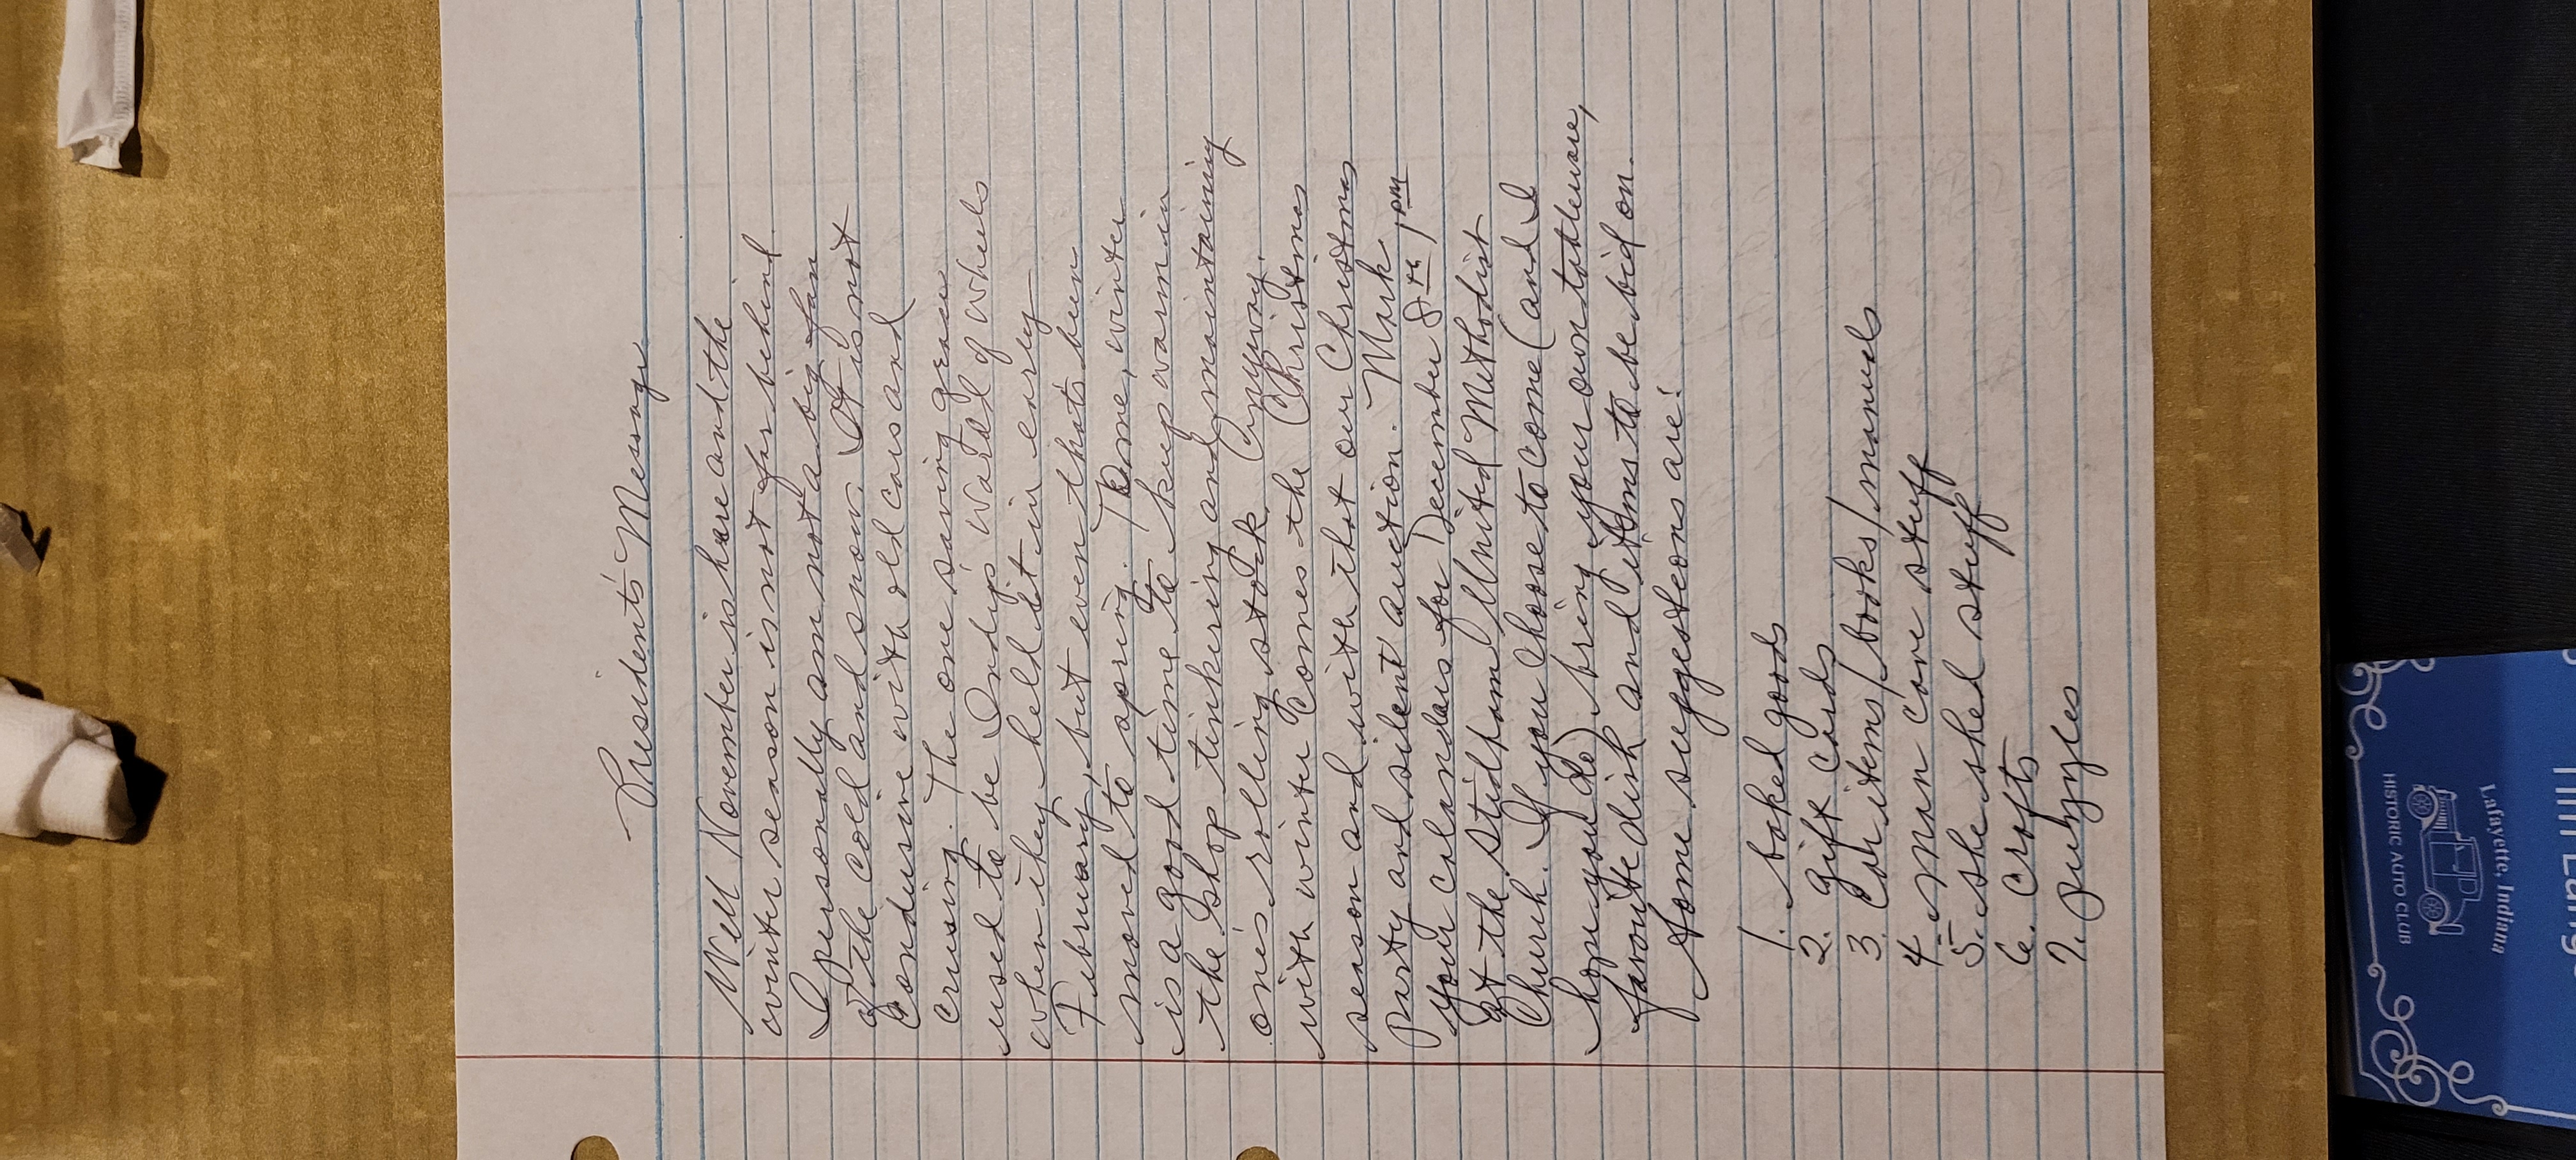 President's Message
Well November is here and the
winter season is not far behind.
I personally am not a big fan
of the cold and snow. It is not
conducive with old cars and
crusing. The one saving grace
used to be Indip's World of Wheels
when they held it in early
February, but even that's been
moved to spring. To me, winter
is a good time to keep warm in
the shop tinkering and maintaining
one's rolling stock. Anyway.
with winter comes the Christmas
season and with that our Christmas
party and silent auction. Mark
your calandars for December 8th, 1 pm
at the Stidham United Methodist
Church. If you choose to come (and I
hope you do) bring your own tableware,
favorite dish and items to be bid on.
Some suggestions are:
1. baked goods
2. gift cards
3. Car items/books/manuals
4. man cave stuff
5. she shed stuff
6. Crafts
7. puzzles
Lafayette, Indiana
HISTORIC AUTO CLUB